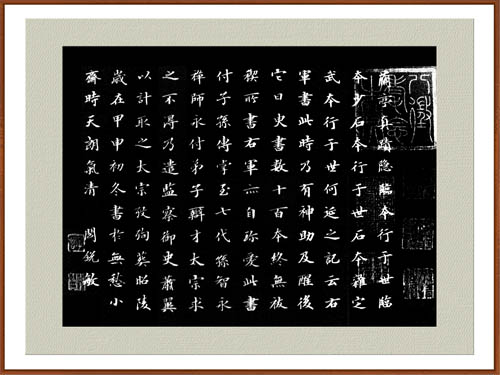 蘭亭真蹟隐臨本行于世臨
本少石本行于世石本雜定
武本行于世何延之記云右
軍書此時乃有神助及醒後
它日更書數十百本終無祓
禊所書右軍亦自珍愛此書
付子孫傳掌至七代孫智永
禅師永付弟子辯才太宗求
之不得乃遣監察御史蕭翼
以計取之太宗殁殉葬昭陵
歲在甲申初冬書於無愁小
齋時天朗氣清 閔锐敏